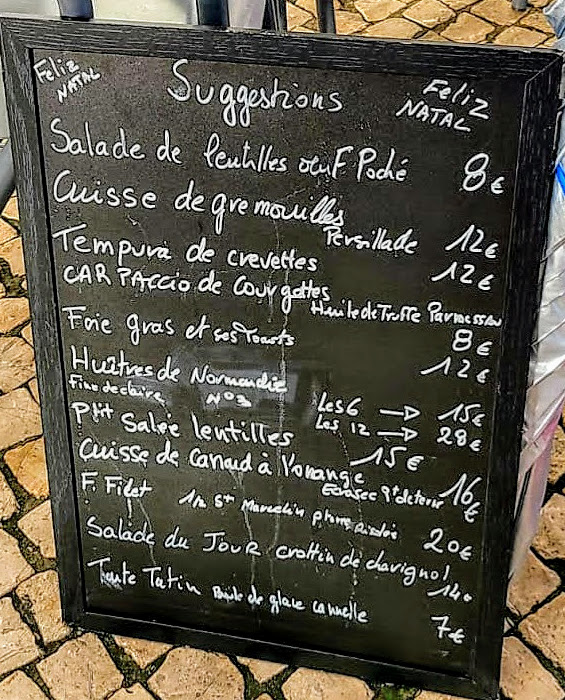 Feliz NATAL
Suggestions
Feliz NATAL
Salade de lentilles œuF Poché 8€
Cuisse de gremouilles Persillade 12€
Tempura de crevettes 12€
CARPACCio de Courgettes Huile de Truffe Parmessan 8€
Foie gras et ses Toasts 12€
Huîtres de Normandie Les 6 → 15€
Fine de claire N°3 Les 12 → 28€
Ptit Salée lentilles 15€
Cuisse de canard à l'orange 16€
F. Filet St Marcelin 20€
Salade du Jour crottin de chavignol 14
Tarte Tatin Boule de glace cannelle 7€